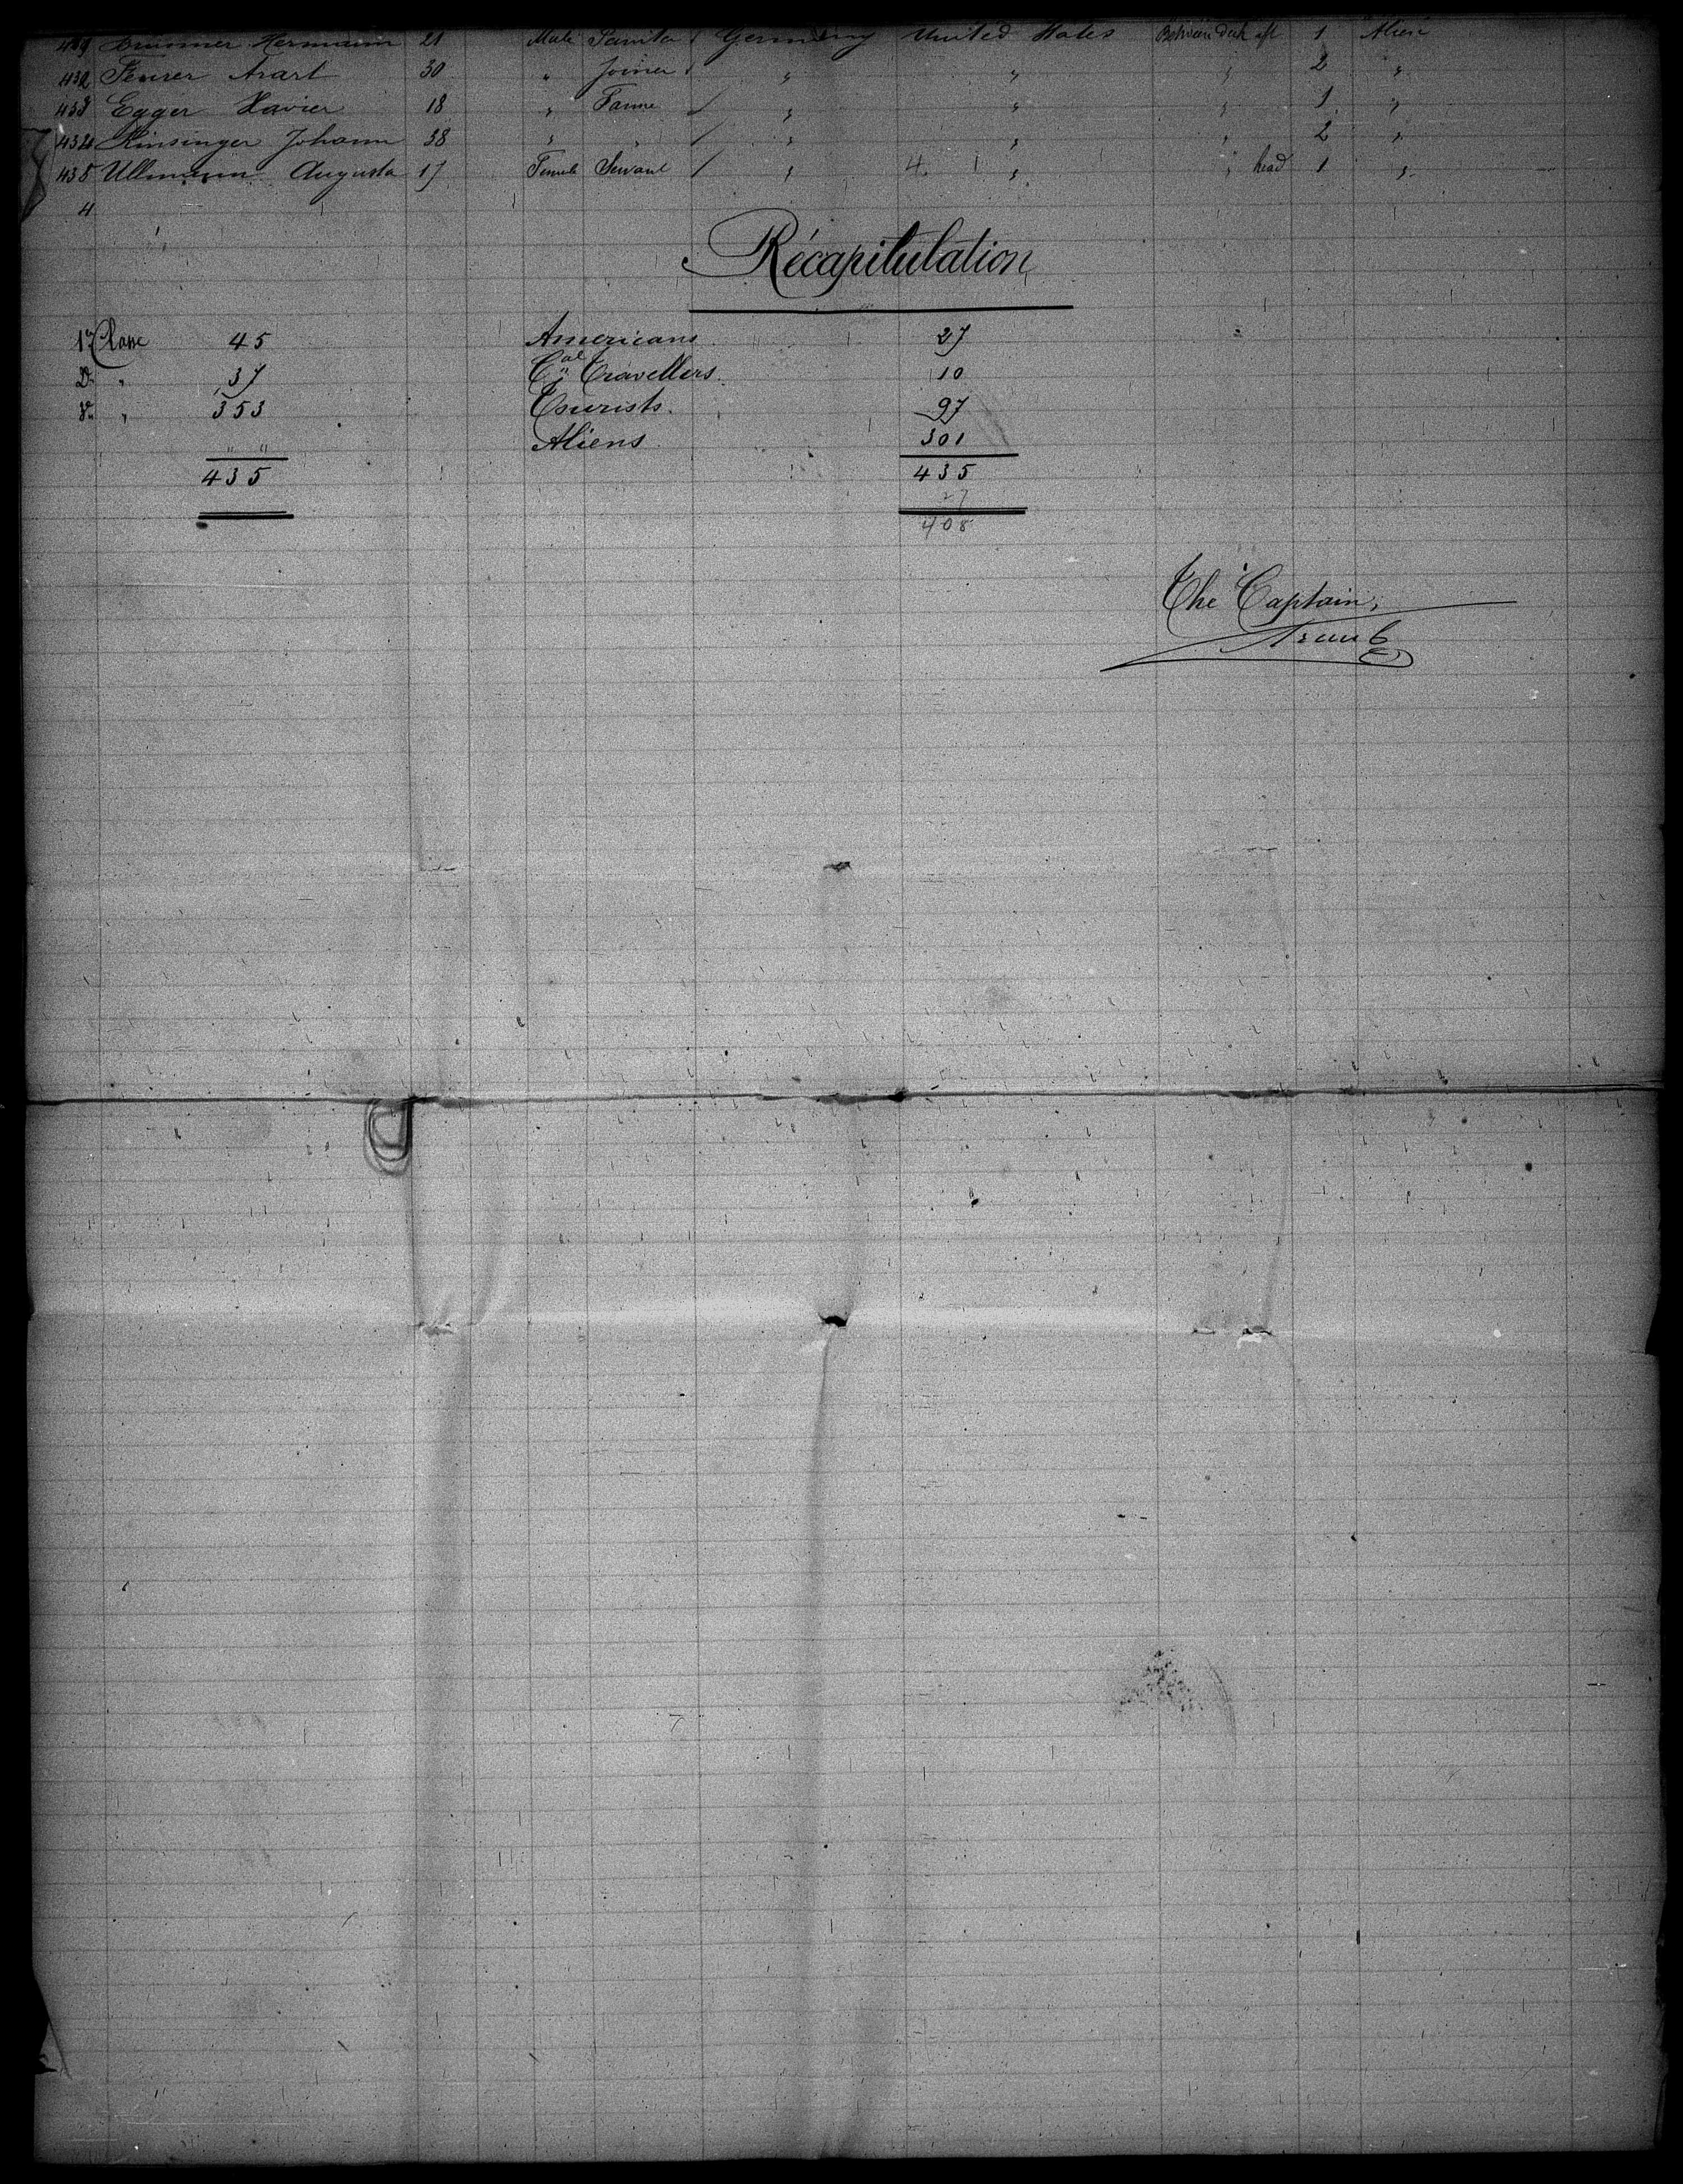 Brunner Hermann 21 Male Germany United States Between deck aft 1 Alien
432 Feurer 30 " Joiner " " " 2 "
433 Egger Xavier 18 " Farmer / " " " 1 "
434 Kinsinger Johann 38 " " / " " " 2 "
435 Ullmann Augusta 17 Female Servant / " 4 1 " " head 1 "
4
Récapitulation
1re Classe 45 Americans 27
2e " 37 Cial Travellers 10
3e " 353 Tourists. 97
" " Aliens 301
435 435
27
408
The Captain,